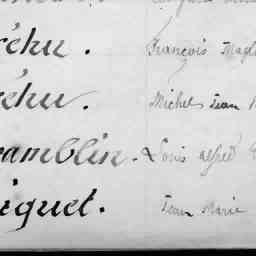 réhu. François
éhu. Michel Jean
ramblin. Louis alfred
iguet. Jean Marie